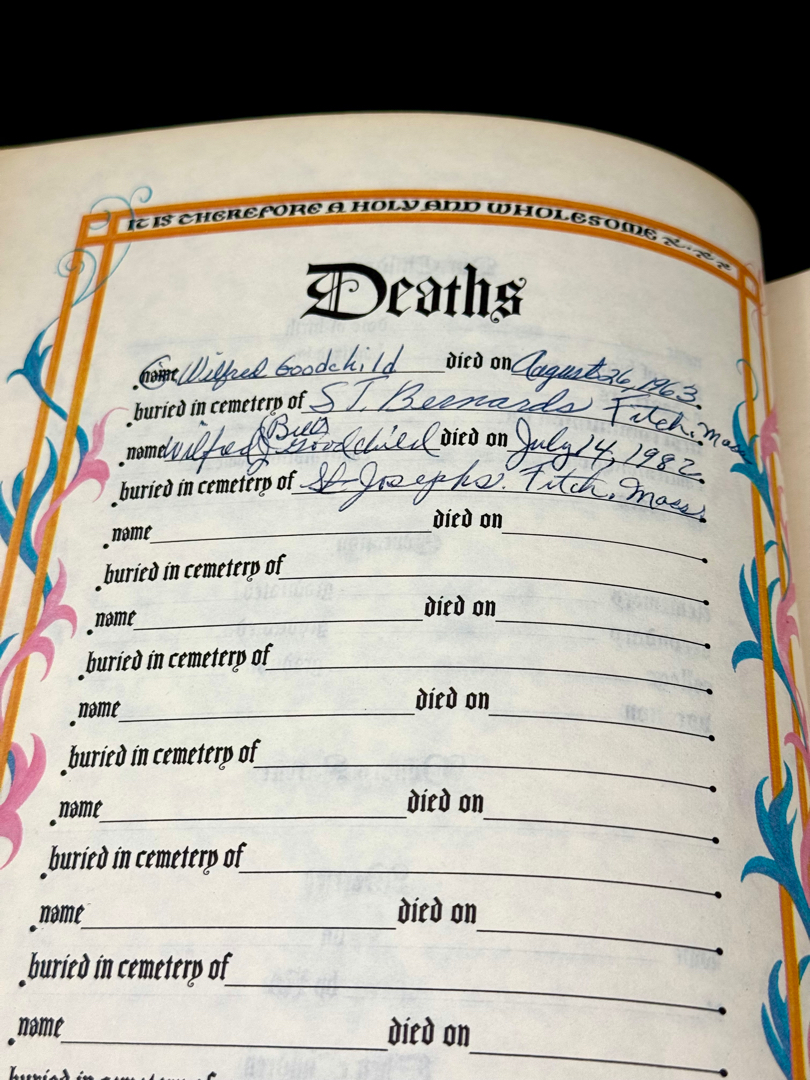 IT IS THEREFORE A HOLY AND WHOLESOME
Deaths
name Wilfred Goodchild died on August 26, 1963.
buried in cemetery of ST. Bernards Fitch. Mass
name Wilfred J Goodchild died on July 14, 1982.
buried in cemetery of St Josephs. Fitch. Mass.
name died on
buried in cemetery of
name died on
buried in cemetery of
name died on
buried in cemetery of
name died on
buried in cemetery of
name died on
buried in cemetery of
name died on
buried in cemetery of